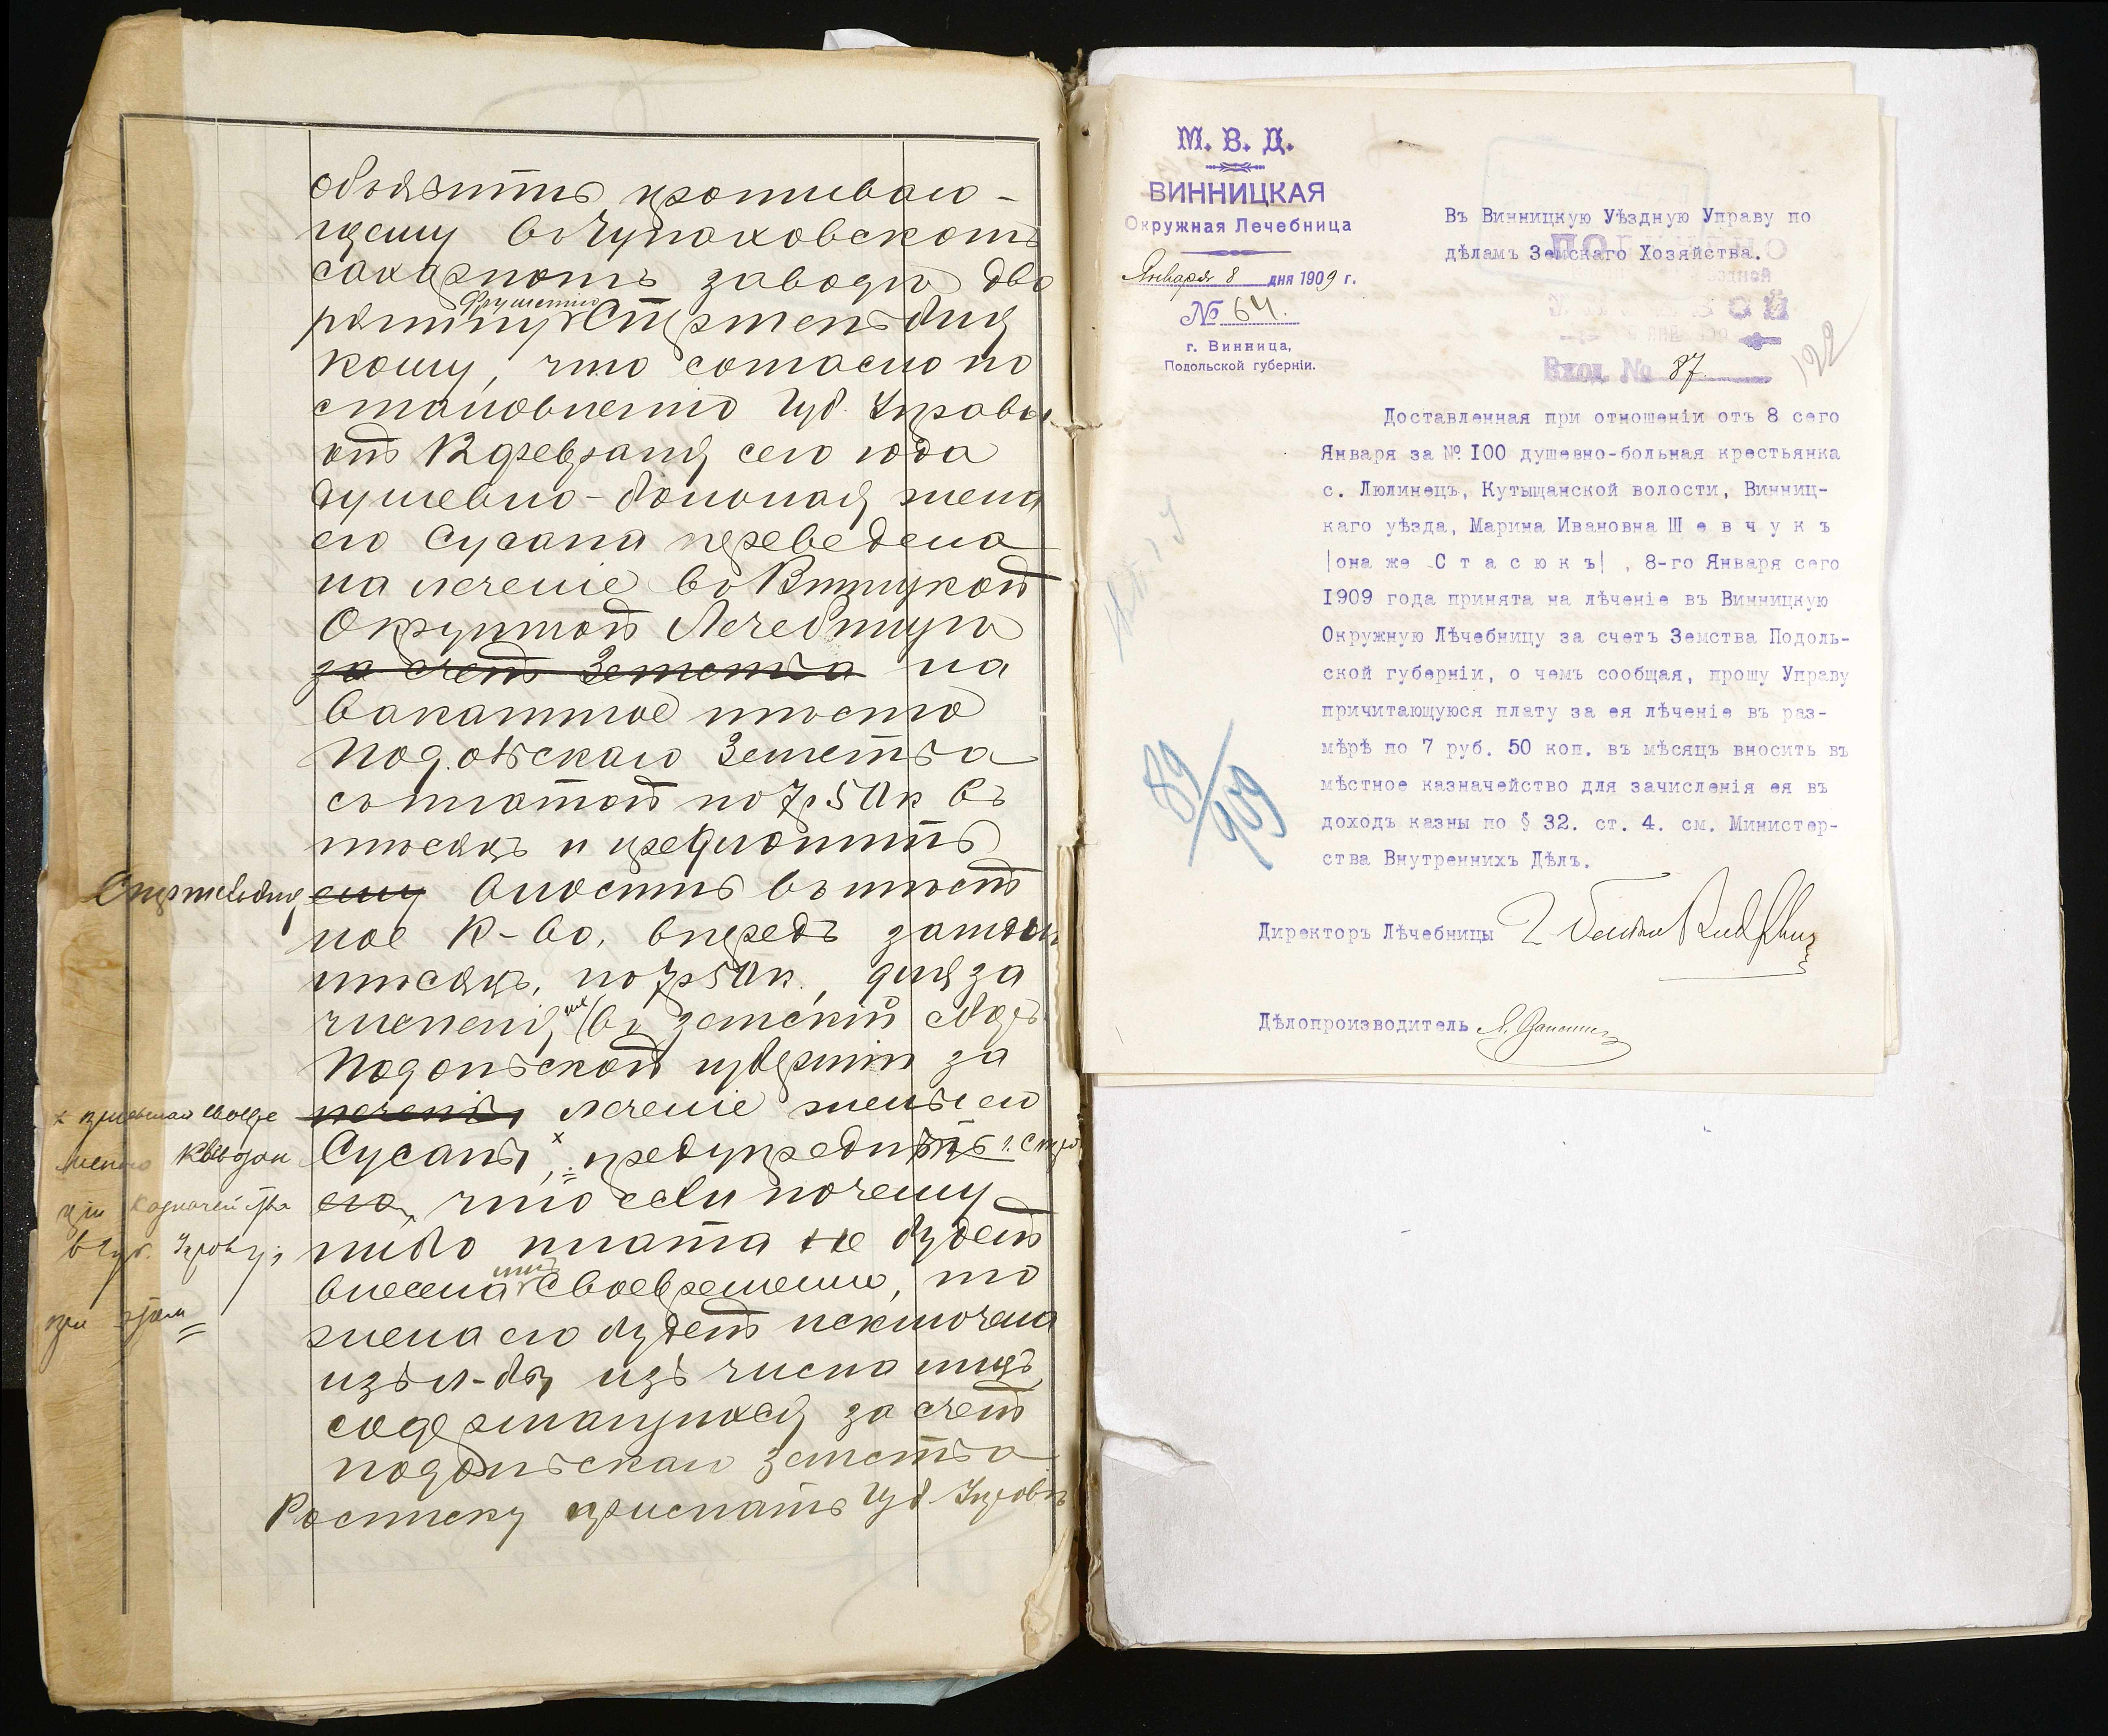 объявить проживаю-
щему въ Чупаховскомъ
сахарномъ заводѣ дво
рянину Стржельбиц
кому, что согласно по
становленію Губ. Управы
отъ 12 февраля сего года
душевно-больная жена
его Сусана переведена
на леченіе въ Винницкой
Окружной Лечебницѣ
за счетъ Земства на
вакантное мѣсто
Подольскаго Земства
съ платой по 7 р 50 к въ
мѣсяцъ и предложить
ему вносить въ мѣст
ное К-во, впредь за
мѣсяцъ, по 7 р 50 к., для за
численія въ земскій сборъ
Подольской губерніи за
леченіе леченіе жены его
Сусаны, предупредить
его, что если почему
либо плата не будетъ
внесена имъ своевременно, то
жена его будетъ исключена
изъ л-цы изъ числа лицъ
содержащихся за счетъ
подольскаго земства
Росписку прислать Губ. Управѣ
казначейства
въ Губ. Управу,
при этомъ
М. В. Д.
ВИННИЦКАЯ
Окружная Лечебница
Января 8 дня 1909 г.
№ 64.
г. Винница,
Подольской губерніи.
Въ Винницкую Уѣздную Управу по
дѣламъ Земскаго Хозяйства.
Вход. № 87
122
Доставленная при отношеніи отъ 8 сего
Января за № I00 душевно-больная крестьянка
с. Люлинецъ, Кутыщанской волости, Винниц-
каго уѣзда, Марина Ивановна Ш е в ч у к ъ
|она же С т а с ю к ъ| , 8-го Января сего
I909 года принята на лѣченіе въ Винницкую
Окружную Лѣчебницу за счетъ Земства Подоль-
ской губерніи, о чемъ сообщая, прошу Управу
причитающуюся плату за ея лѣченіе въ раз-
мѣрѣ по 7 руб. 50 коп. въ мѣсяцъ вносить въ
мѣстное казначейство для зачисленія ея въ
доходъ казны по § 32. ст. 4. см. Министер-
ства Внутреннихъ Дѣлъ.
89/909
Директоръ Лѣчебницы
Дѣлопроизводитель